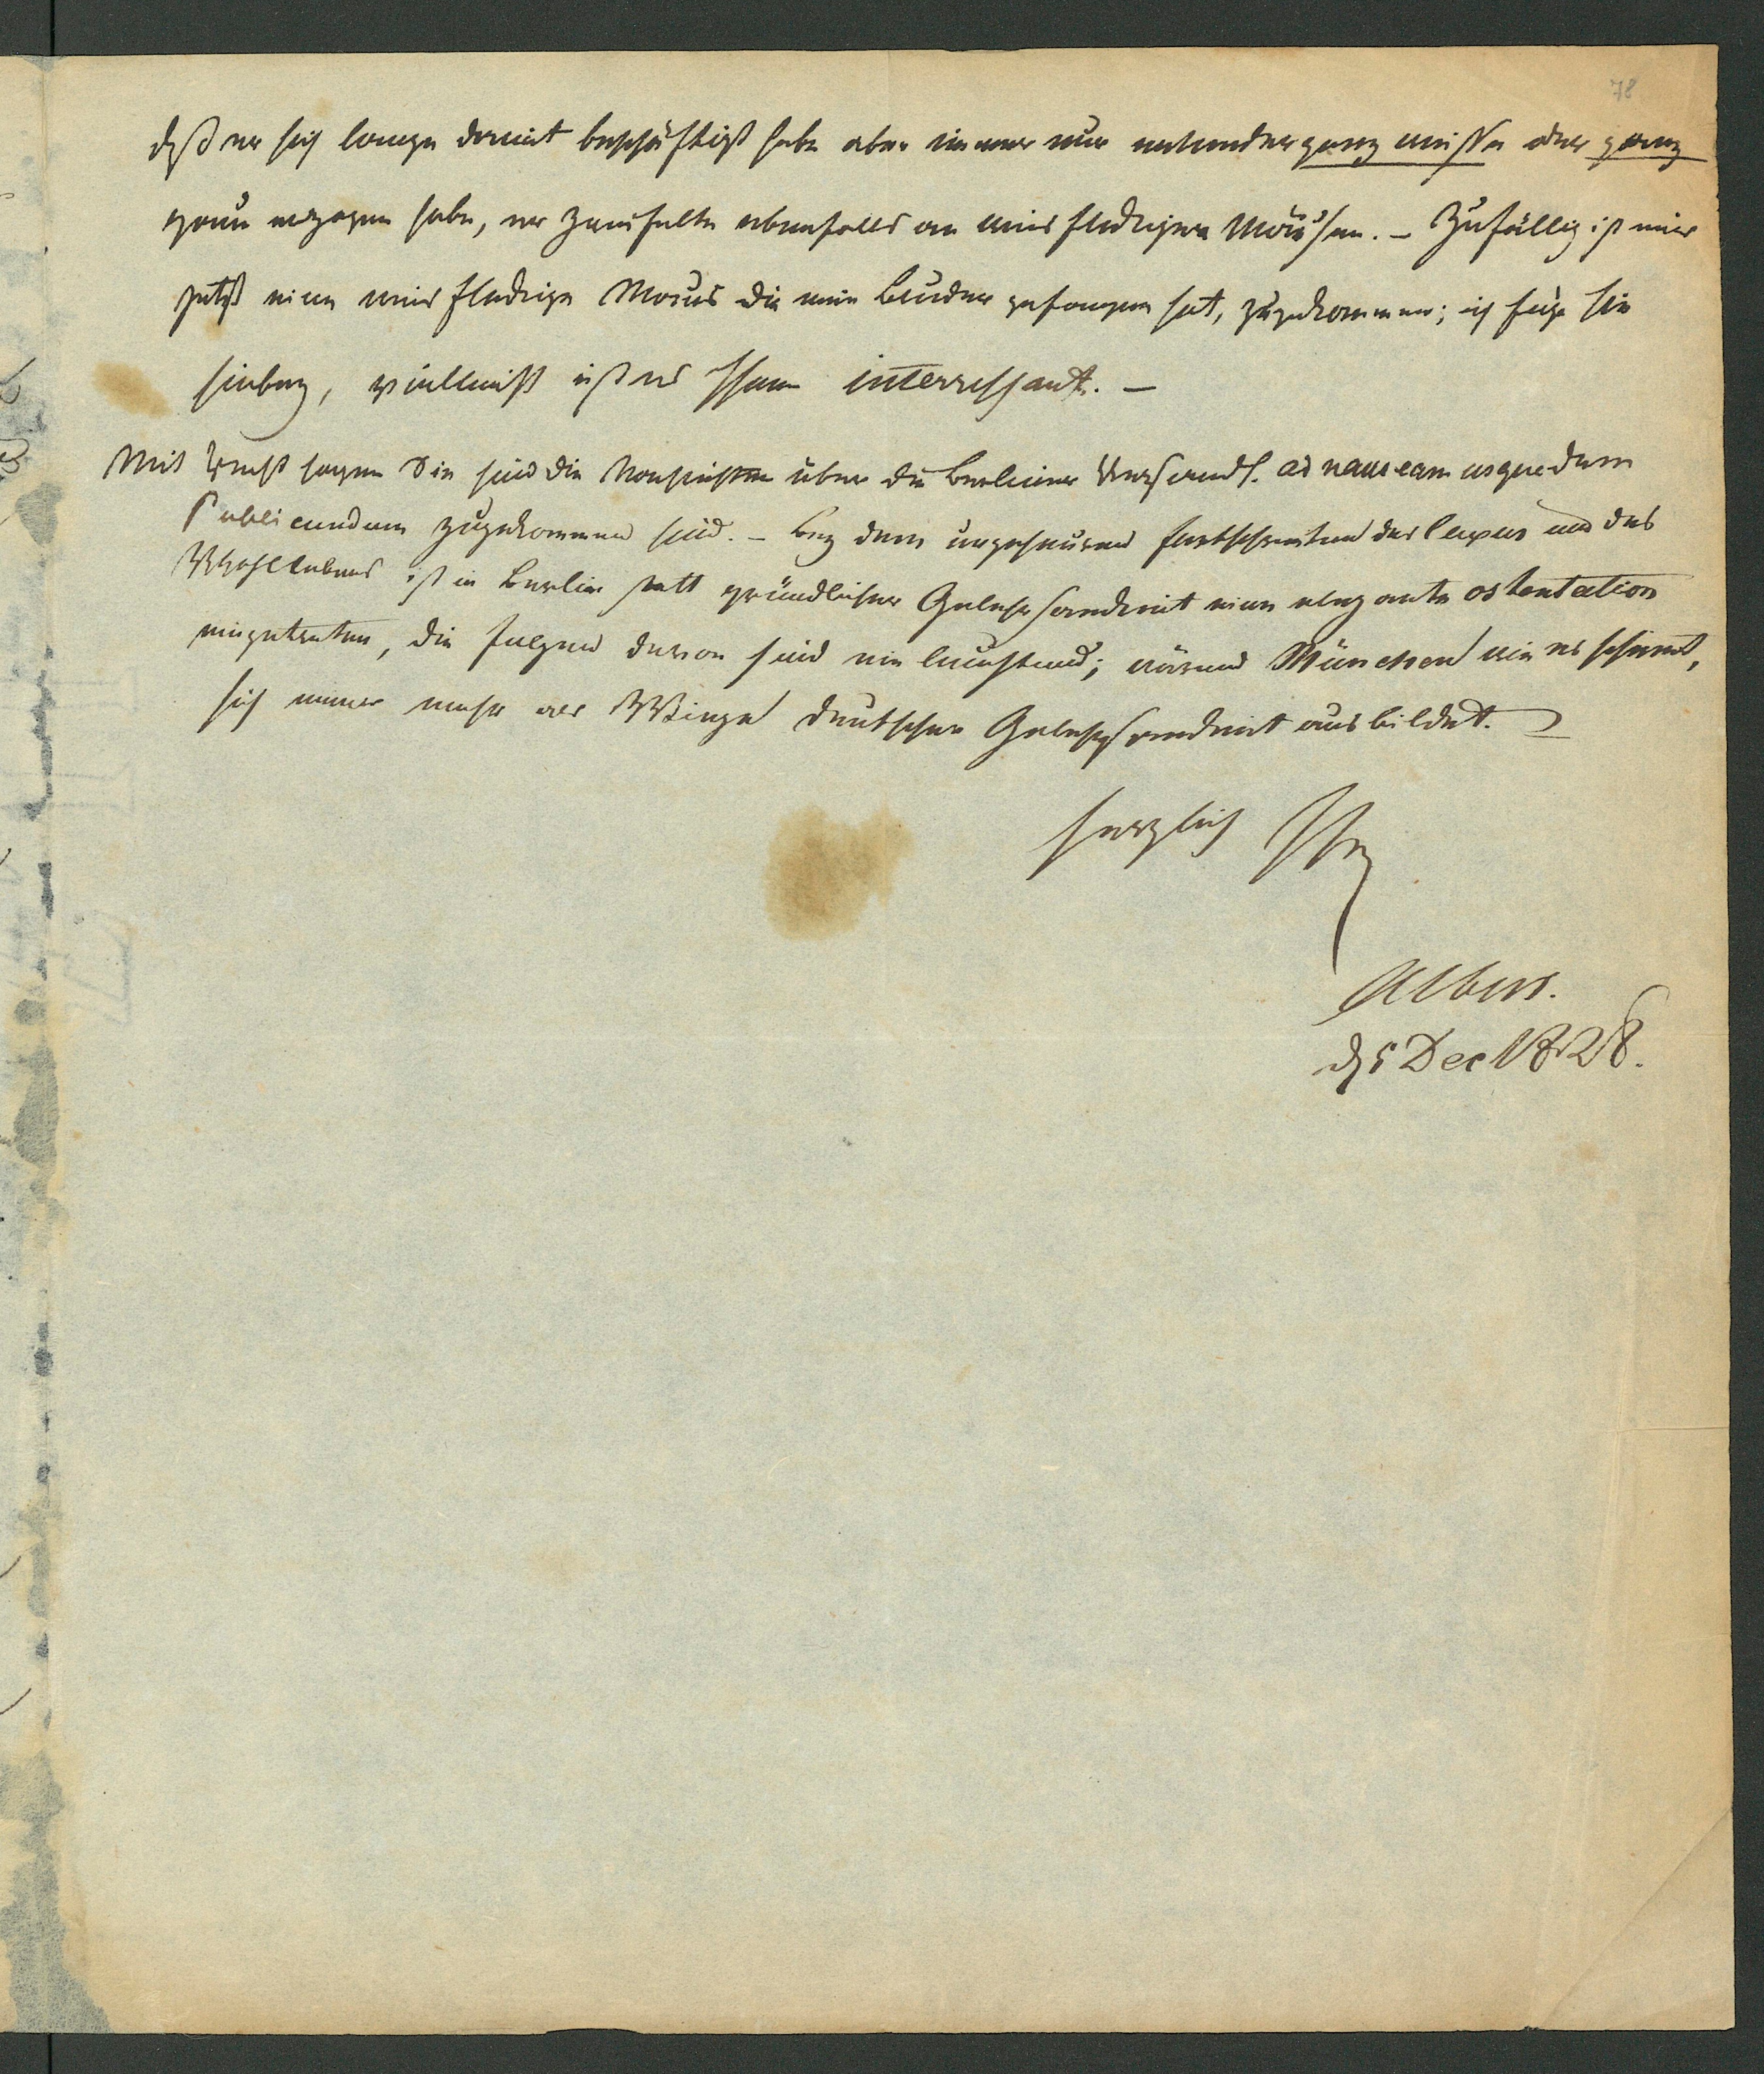 78
daß er sich lange damit beschäftigt habe aber immer nur entweder ganz weiße oder ganz
graue erzogen habe, er zweifelte ebenfalls an weis fleckigen Mäusen. – Zufällig ist mir
jetzt eine weis fleckige Maus die mein Bruder gefangen hat, zugekommen; ich füge sie
hiebey, vielleicht ist es Ihnen interressant. –
Mit Recht sagen Sie sind die Nachrichten über die Berliner Versamml. ad nauseam usque dem
Publicundum zugekommen sind. – Bey dem ungeheuren fortschreiten des Luxus und des
Wohllebens ist in Berlin statt gründlicher Gelehrsamkeit eine elegante ostentation
eingetreten, die folgen davon sind ein leuchtend; wärend München wie es scheint,
sich immer mehr als Wiege deutscher Gelehrsamkeit ausbildet.
herzlich Ihr
Albers.
d 5 Dec 1828.